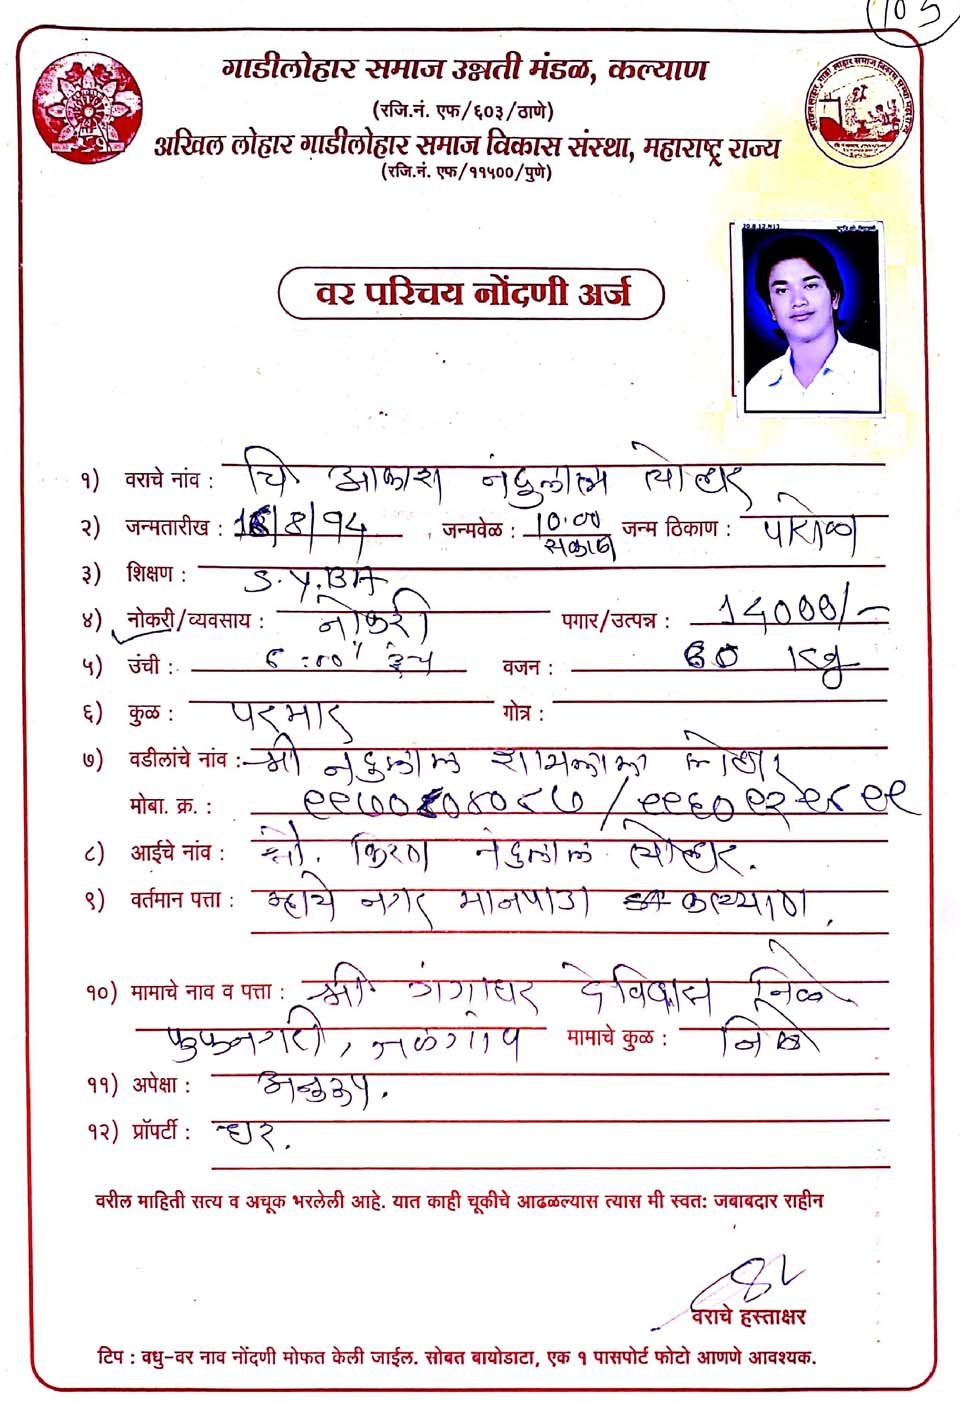 105
गाडीलोहार समाज उन्नती मंडळ, कल्याण
(रजि.नं. एफ/६०३/ठाणे)
अखिल लोहार गाडीलोहार समाज विकास संस्था, महाराष्ट्र राज्य
(रजि.नं. एफ/११५००/पुणे)
वर परिचय नोंदणी अर्ज
१) वराचे नांव : चि आकाश नंदुलाल लोहार
२) जन्मतारीख : /8/94 जन्मवेळ : 10.00 सकाळ जन्म ठिकाण : पारोळा
३) शिक्षण : S.Y.BA
४) नोकरी/व्यवसाय : नोकरी पगार/उत्पन्न : 14000/-
५) उंची : इंच वजन : 60 Kg
६) कुळ : परमार गोत्र :
७) वडीलांचे नांव : श्री नंदुलाल शामलाल लोहार
मोबा. क्र. :
८) आईचे नांव : सौ. किरण नंदुलाल लोहार.
९) वर्तमान पत्ता : नगर मानपाडा कल्याण.
१०) मामाचे नाव व पत्ता : श्री गंगाधर देविदास निळे
फुफनगरी, जळगांव मामाचे कुळ : निळे
११) अपेक्षा : अनुरूप.
१२) प्रॉपर्टी : घर.
वरील माहिती सत्य व अचूक भरलेली आहे. यात काही चूकीचे आढळल्यास त्यास मी स्वत: जबाबदार राहीन
वराचे हस्ताक्षर
टिप : वधु-वर नाव नोंदणी मोफत केली जाईल. सोबत बायोडाटा, एक १ पासपोर्ट फोटो आणणे आवश्यक.